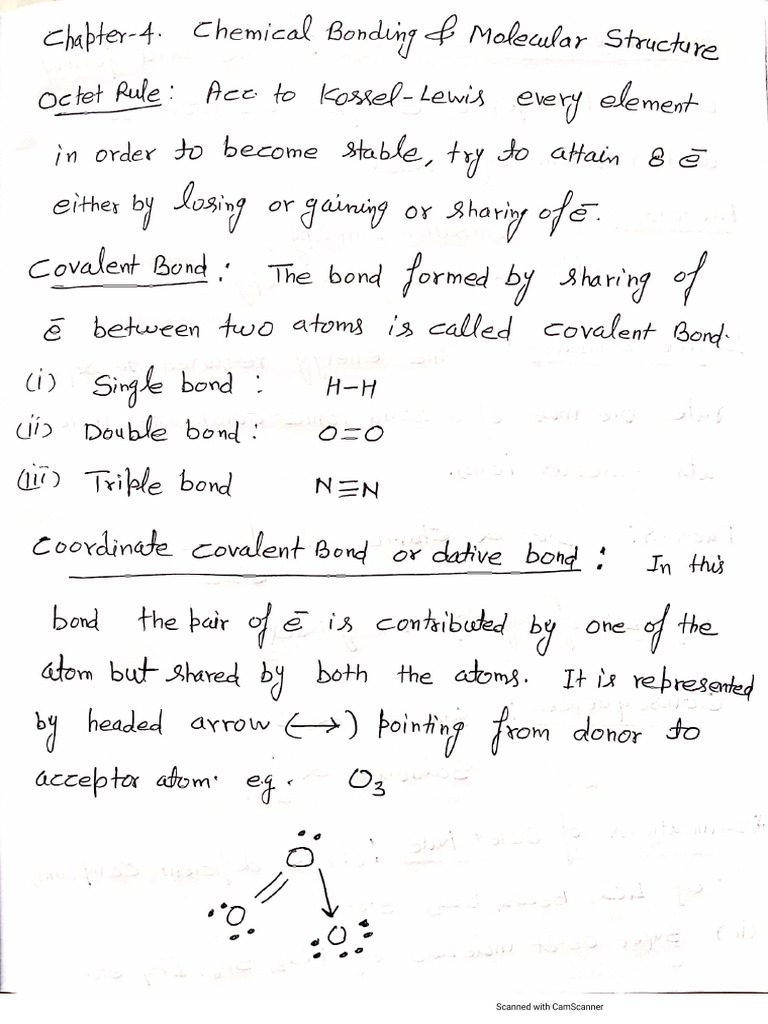 Chapter-4. Chemical Bonding & Molecular Structure
Octet Rule: Acc. to Kossel-Lewis every element
in order to become stable, try to attain 8 ē
either by losing or gaining or sharing of ē.
Covalent Bond: The bond formed by sharing of
ē between two atoms is called covalent Bond.
(i) Single bond : H-H
(ii) Double bond : O=O
(iii) Triple bond N≡N
Coordinate covalent Bond or dative bond : In this
bond the pair of ē is contributed by one of the
atom but shared by both the atoms. It is represented
by headed arrow (→) pointing from donor to
acceptor atom. e.g. O3
O
O
O
Scanned with CamScanner